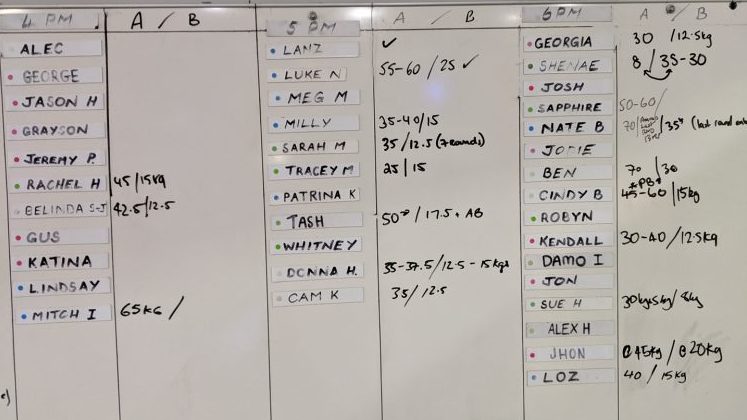 4 PM A / B
ALEC
GEORGE
JASON H
GRAYSON
JEREMY P.
RACHEL H 45/15kg
BELINDA S-J 42.5/12.5
GUS
KATINA
LINDSAY
MITCH I 65KG /
5 PM A / B
LANZ ✓
LUKE N 55-60 / 25 ✓
MEG M
MILLY 35-40/15
SARAH M 35/12.5 (7 rounds)
TRACEY M 25/15
PATRINA K
TASH 50 / 17.5 + AB
WHITNEY
DONNA H. 35-37.5/12.5-15kgs
CAM K 35/12.5
6 PM A / B
GEORGIA 30 /12.5kg
SHENAE 8 / 35-30
JOSH
SAPPHIRE 50-60/
NATE B 70/ /35 (last round
JODIE
BEN 70 /30
CINDY B *PB* 45-60 /15kg
ROBYN
KENDALL 30-40/12.5kg
DAMO I
JON
SUE H
ALEX H
JHON 45kg / 20kg
LOZ 40 / 15kg